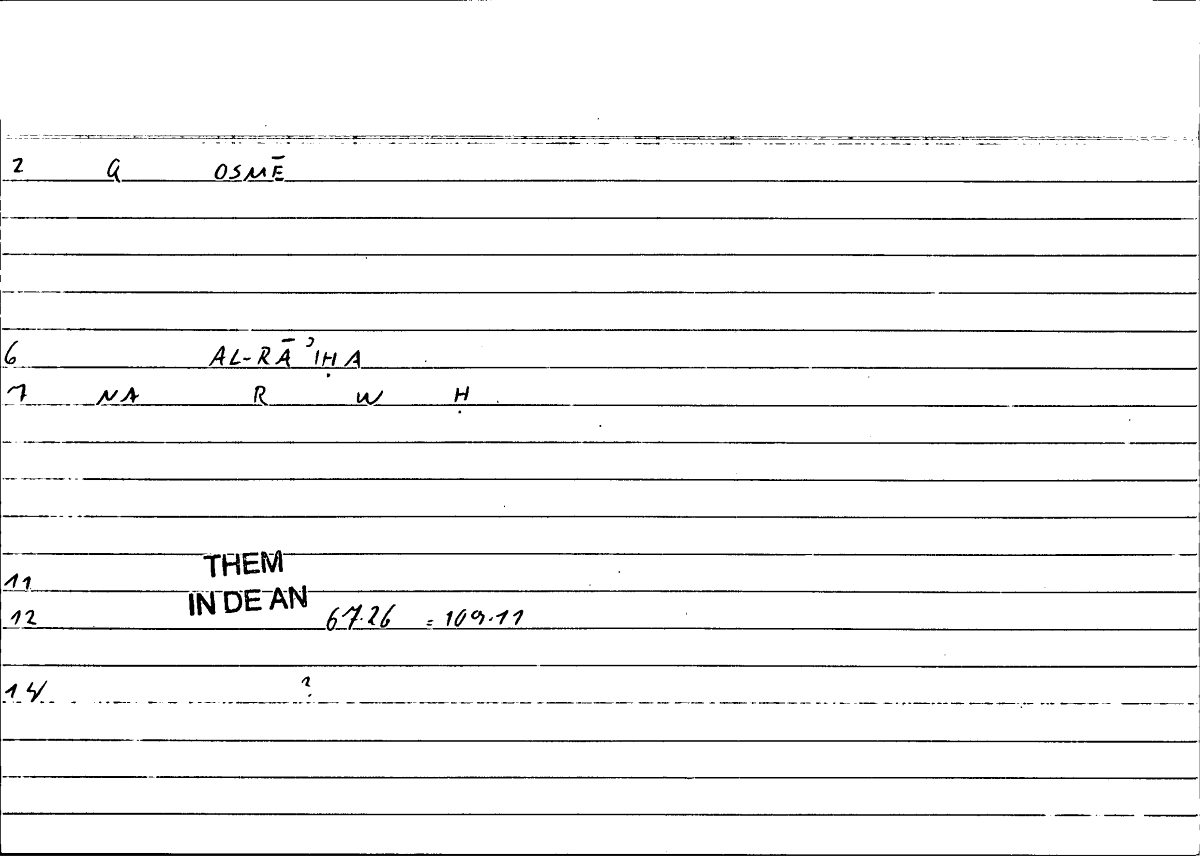 2 G OSMĒ
6 AL-RĀʾIḤA
7 NA R W Ḥ
THEM
11
IN DE AN
12 67.26 = 109.11
14 ?